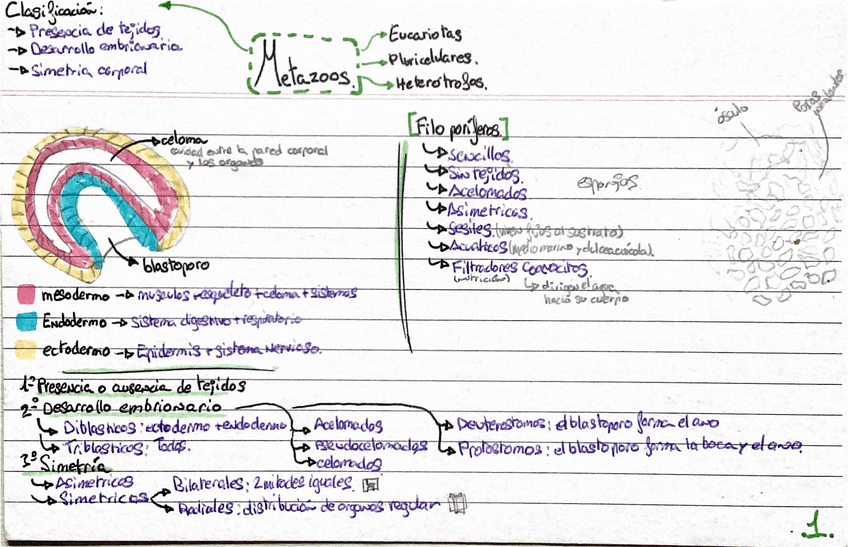 Clasificación:
→ Presencia de tejidos
→ Desarrollo embrionario
→ Simetría corporal
Metazoos.
Eucariotas
Pluricelulares.
Heterótrofos.
celoma
cavidad entre la pared corporal
y los organos
blastoporo
mesodermo → musculos + esqueleto + celoma + sistemas
Endodermo → sistema digestivo + respiratorio
ectodermo → Epidermis + sistema nervioso.
[Filo poríferos.]
Sencillos.
Sin tejidos.
Acelomados
Asimetricos.
Sesiles (viven fijos al sustrato)
Acuaticos (medio marino y dulceacuícola).
Filtradores coanocitos.
(nutrición) ↳ dirigen el agua
hacia su cuerpo
esponjas
ósculo
Poros
inhalantes
1º Presencia o ausencia de tejidos
2º Desarrollo embrionario
Diblasticos: ectodermo + endodermo
Triblasticos: Todos.
Acelomados
Pseudocelomados
celomados
Deuterostomos: el blastoporo forma el ano
Protostomos: el blastoporo forma la boca y el ano.
3º Simetría
Asimetricos
Simetricos
Bilaterales: 2 mitades iguales.
Radiales: distribución de organos regular
1.